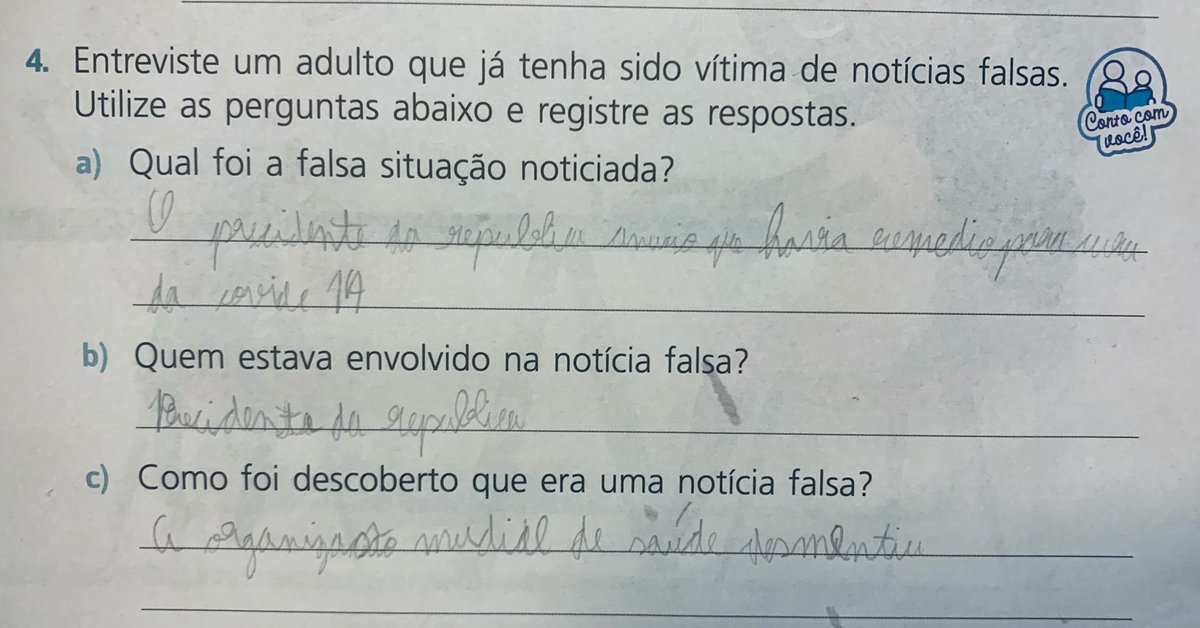 4. Entreviste um adulto que já tenha sido vítima de notícias falsas.
Utilize as perguntas abaixo e registre as respostas.
Conto com
você!
a) Qual foi a falsa situação noticiada?
O precidente da republica que havia remedio para
da covide 19
b) Quem estava envolvido na notícia falsa?
Precidente da republica
c) Como foi descoberto que era uma notícia falsa?
a organizasto mudial de saúde desmentiu